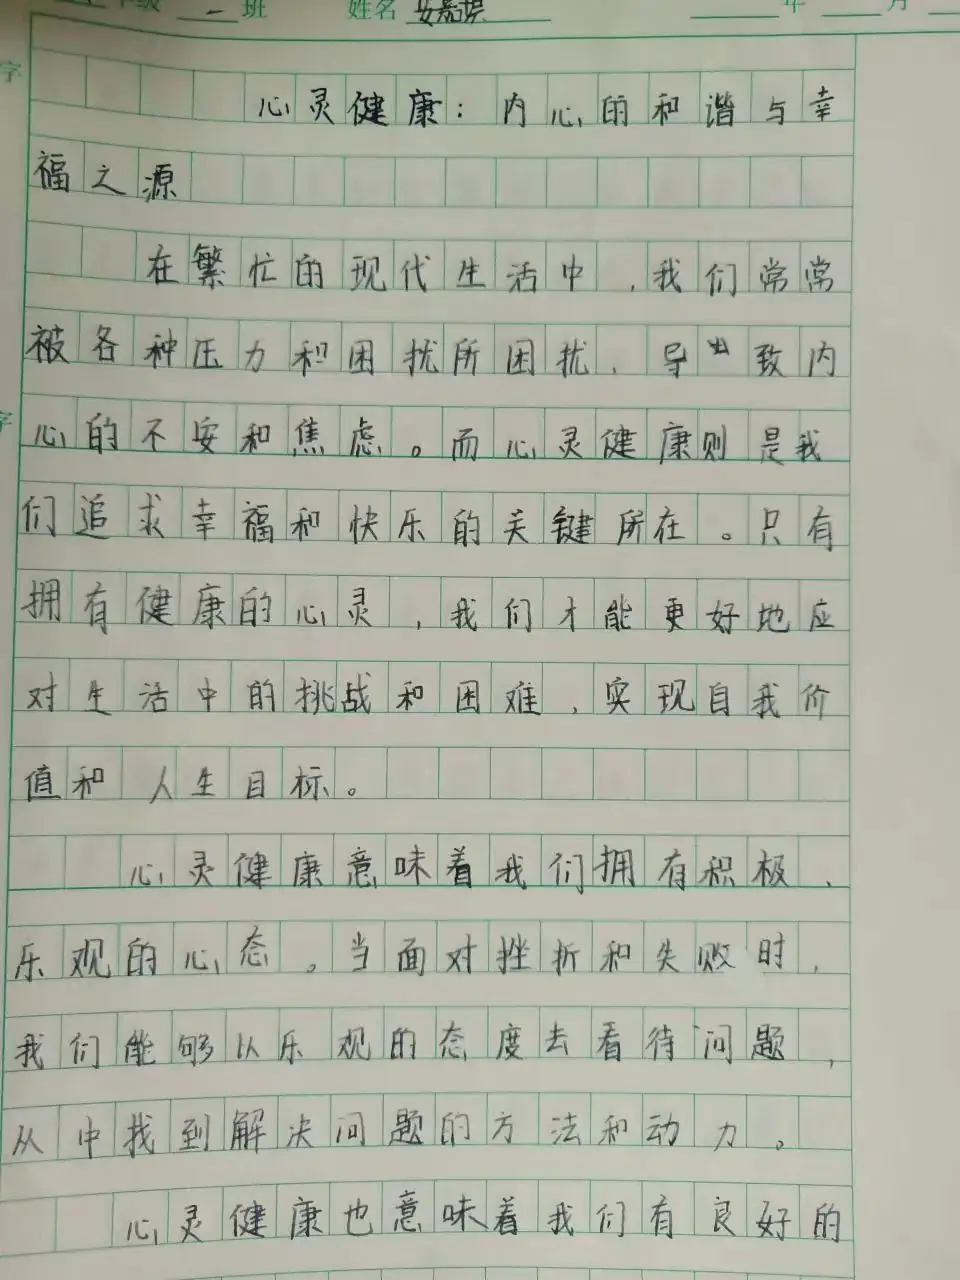 班 姓名 年 月
字
心灵健康：内心的和谐与幸
福之源
在繁忙的现代生活中，我们常常
被各种压力和困扰所困扰，导出致内
字
心的不安和焦虑。而心灵健康则是我
们追求幸福和快乐的关键所在。只有
拥有健康的心灵，我们才能更好地应
对生活中的挑战和困难，实现自我价
值和人生目标。
心灵健康意味着我们拥有积极、
乐观的心态。当面对挫折和失败时，
我们能够以乐观的态度去看待问题，
从中找到解决问题的方法和动力。
心灵健康也意味着我们有良好的